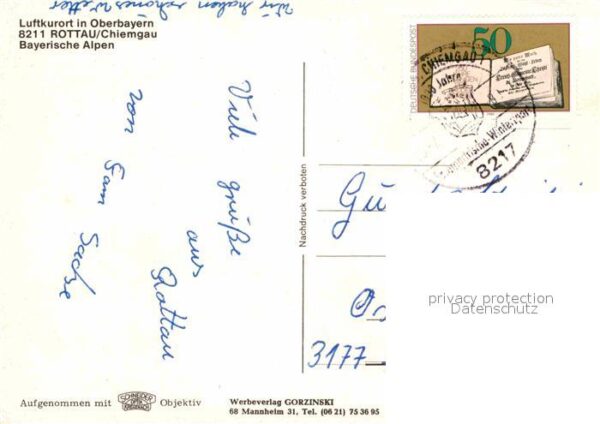 Wir haben schönes Wetter
Luftkurort in Oberbayern
8211 ROTTAU/Chiemgau
Bayerische Alpen
Viele grüße
aus
Rottau
von
Fam Sachse
Nachdruck verboten
DEUTSCHE BUNDESPOST
50
CHIEMGAU 1
Jahre
8217
Gü
Os
3177
privacy protection
Datenschutz
Aufgenommen mit
SCHNEIDER
KREUZNACH
Objektiv
Werbeverlag GORZINSKI
68 Mannheim 31, Tel. (06 21) 75 36 95